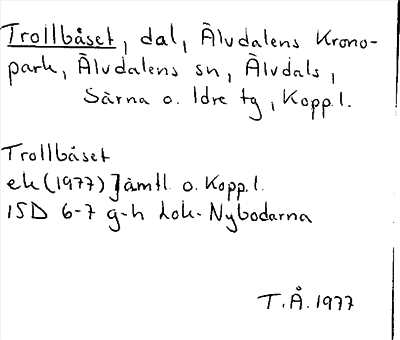 Trollbåset, dal, Älvdalens Krono-
park, Älvdalens sn, Älvdals,
Särna o. Idre tg, Kopp.l.
Trollbåset
ek (1977) Jämtl. o. Kopp.l.
15D 6-7 g-h Lok. Nybodarna
T.Å. 1977